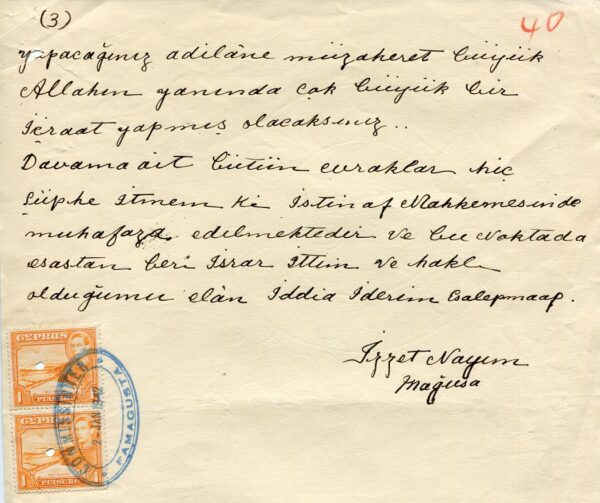 (3)
40
yapacağınız adilâne müzaheret büyük
Allahın yanında çok büyük bir
İcraat yapmış olacaksınız..
Davama âit bütün evraklar hiç
Şüphe İtmem ki İstinaf Mahkemesinde
muhafaza edilmektedir ve bu Noktada
esastan beri İsrar İttim ve haklı
olduğumu elân İddia İderim
İzzet Nayım
Mağusa
CYPRUS
1 PIASTRE 1
CYPRUS
1 PIASTRE 1
COMMISSIONER
FAMAGUSTA